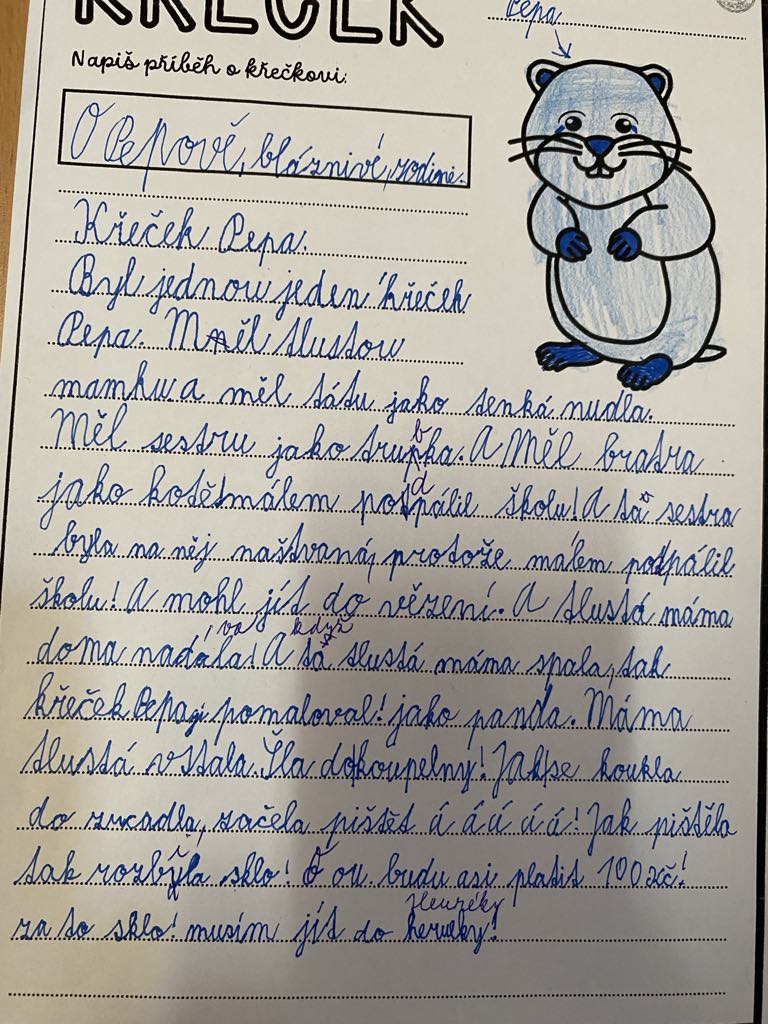 KŘEČEK
Pepa
Napiš příběh o křečkovi:
O Pepově, bláznivé, rodině.
Křeček Pepa.
Byl jednou jeden křeček
Pepa. Měl tlustou
mamku a měl tátu jako tenká nudla.
Měl sestru jako trubka. A Měl bratra
jako kotě málem podpálil školu! A ta sestra
byla na něj naštvaná, protože málem podpálil
školu! A mohl jít do vězení. A tlustá máma
doma nadávala! A když tlustá máma spala, tak
křeček Pepa ji pomaloval! jako panda. Máma
tlustá vstala Šla do koupelny! Jak se koukla
do zrcadla, začela pištět á á á á á! Jak pištěla
tak rozbila sklo! Ó ou budu asi platit 100 kč!
za to sklo! musím jít do